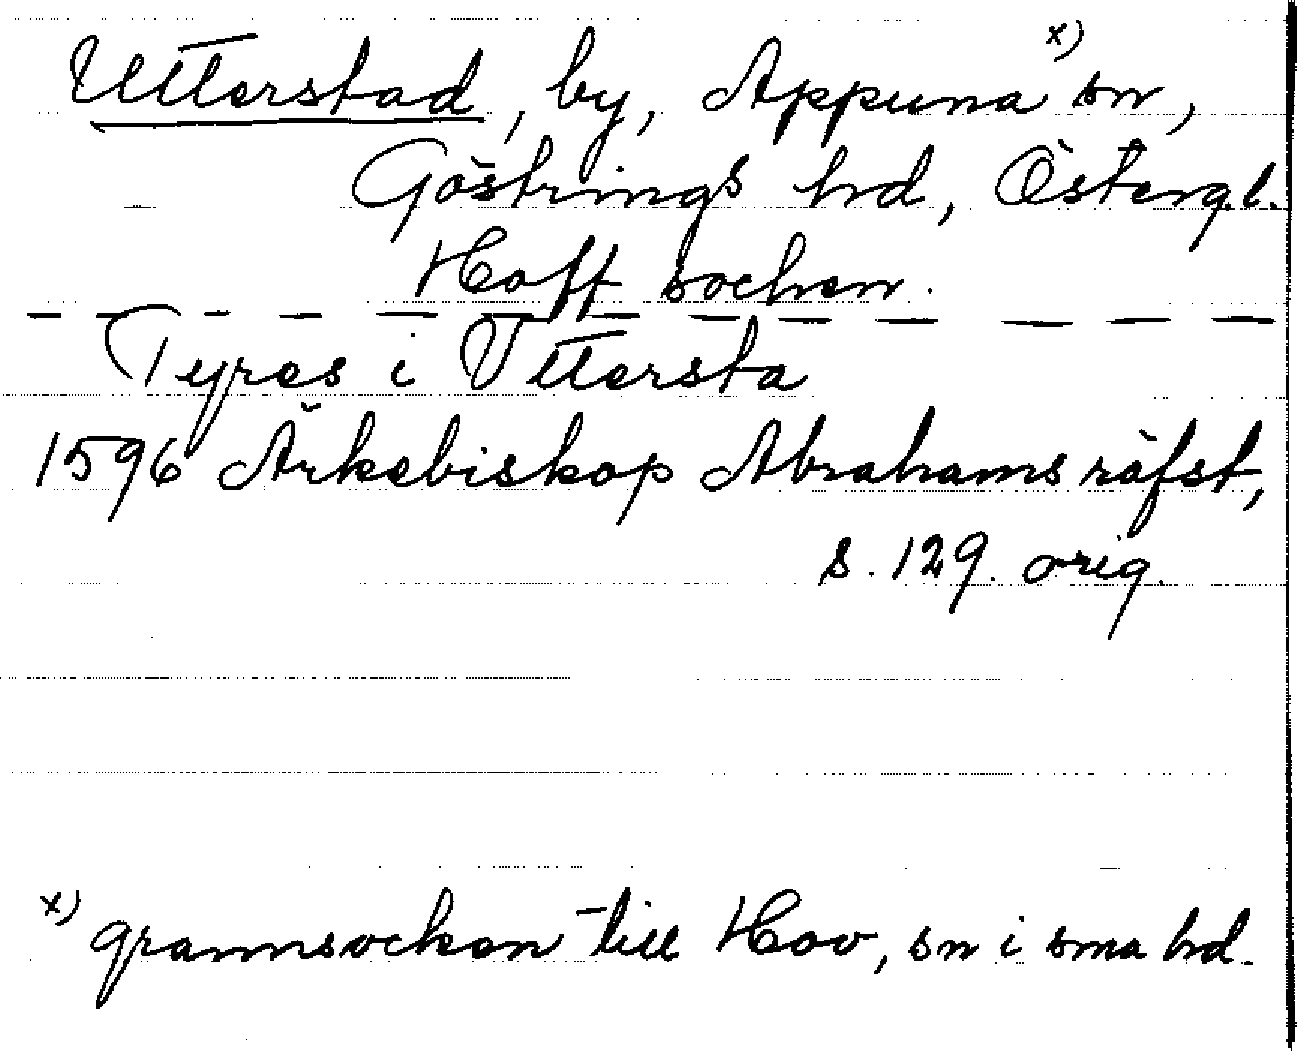 Utterstad, by, Appuna x) sn,
Göstrings hd, Östergl.
Hoff sochen.
Tyres i Vttersta
1596 Ärkebiskop Abrahams räfst,
s. 129. orig.
x) grannsocken till Hov, sn i sma hd.